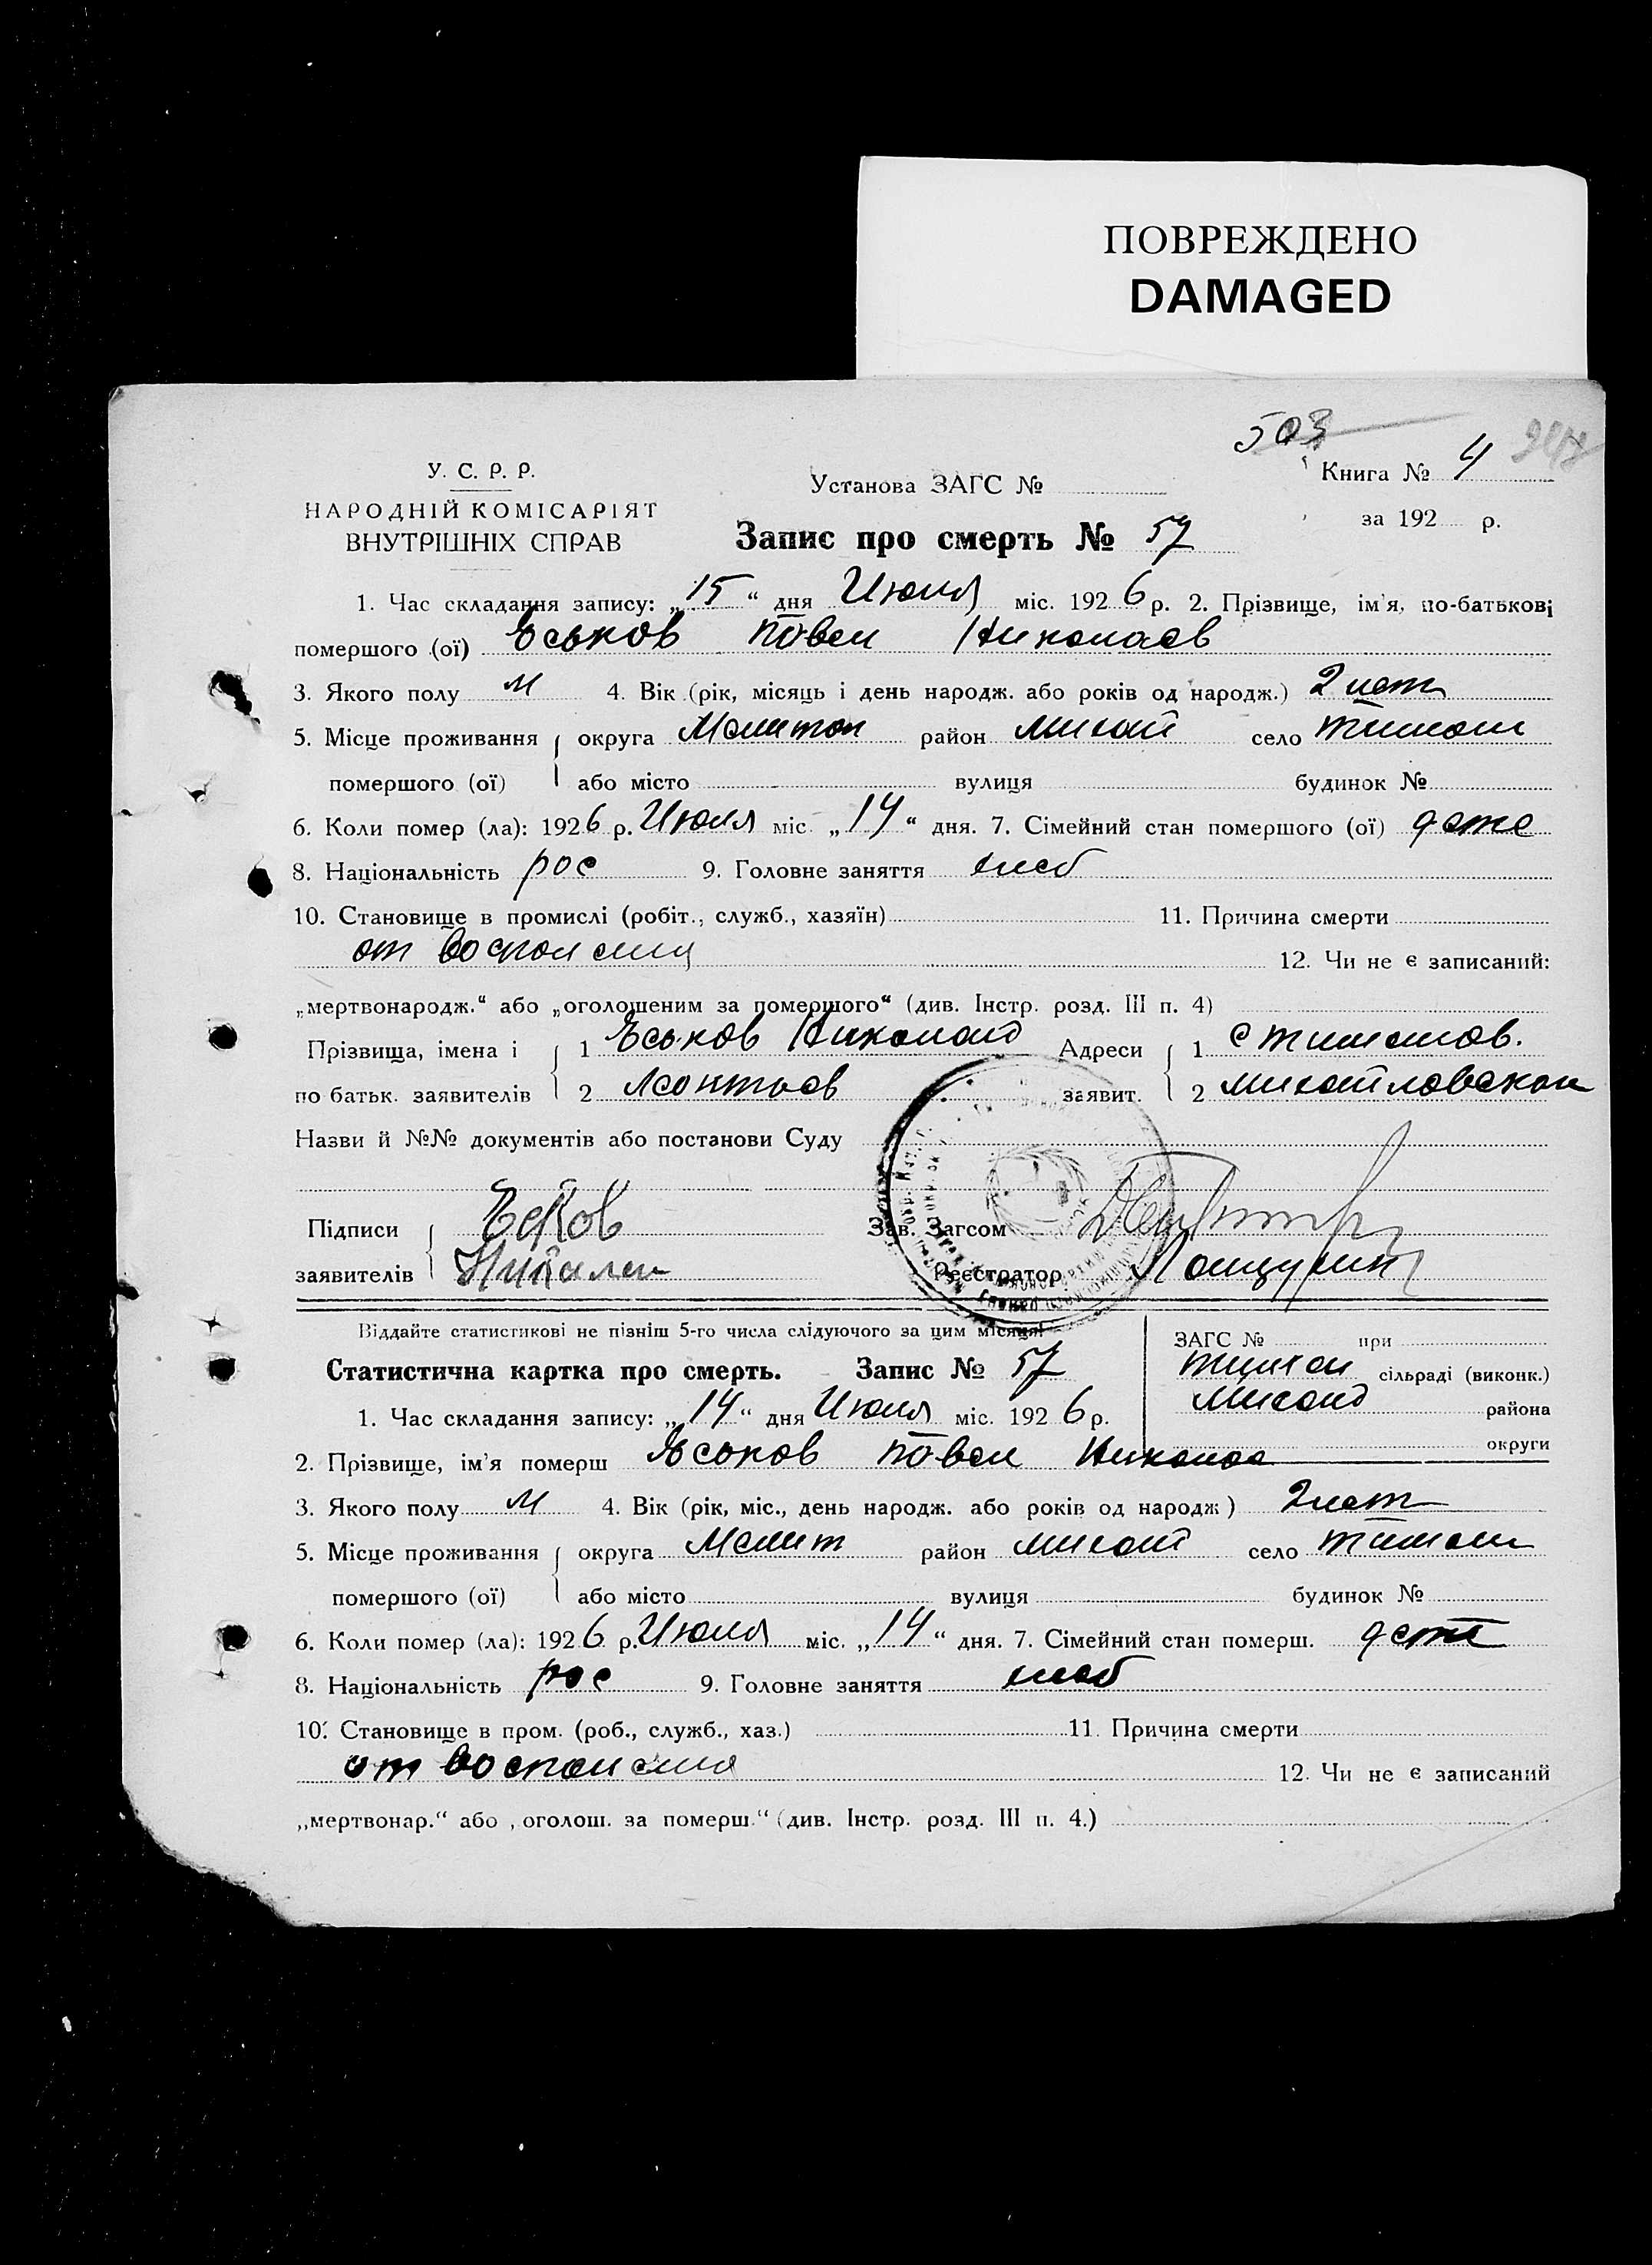 ПОВРЕЖДЕНО
DAMAGED
503
У. С. Р. Р.
НАРОДНІЙ КОМІСАРІЯТ
ВНУТРІШНІХ СПРАВ
Установа ЗАГС №
Книга № 4
за 192 р.
Запис про смерть № 57
1. Час складання запису: „15“ дня Июля міс. 1926 р. 2. Прізвище, ім'я, по-батькові
помершого (ої) Еськов Повел Николаев
3. Якого полу м 4. Вік (рік, місяць і день народж. або років од народж.) 2 лет
5. Місце проживання округа Мелитоп район михай село тимош
помершого (ої) або місто вулиця будинок №
6. Коли помер (ла): 1926 р. Июля міс. „14“ дня. 7. Сімейний стан помершого (ої) дете
8. Національність рос 9. Головне заняття хлеб
10. Становище в промислі (робіт., служб., хазяїн) 11. Причина смерти
от воспол 12. Чи не є записаний:
„мертвонародж.“ або „оголошеним за помершого“ (див. Інстр. розд. III п. 4)
Прізвища, імена і 1 Еськов Николай Адреси 1 с тимошов.
по батьк. заявителів 2 Леонтьев заявит. 2 михайловскои
Назви й №№ документів або постанови Суду
Підписи Есков Зав. Загсом
заявителів Реєстратор
Віддайте статистикові не пізніш 5-го числа слідуючого за цим місяця!
ЗАГС № при
Статистична картка про смерть. Запис № 57
сільраді (виконк.)
1. Час складання запису: „14“ дня Июля міс. 1926 р.
михай района
округи
2. Прізвище, ім'я помер Еськов Повел Никола
3. Якого полу м 4. Вік (рік, міс., день народж. або років од народж) 2 лет
5. Місце проживання округа Мелит район михай село тимош
помершого (ої) або місто вулиця будинок №
6. Коли помер (ла): 1926 р. Июля міс. „14“ дня. 7. Сімейний стан померш. дете
8. Національність рос 9. Головне заняття хлеб
10. Становище в пром. (роб., служб., хаз.) 11. Причина смерти
от воспол 12. Чи не є записаний
„мертвонар.“ або „оголош. за померш.“ (див. Інстр. розд. III п. 4.)